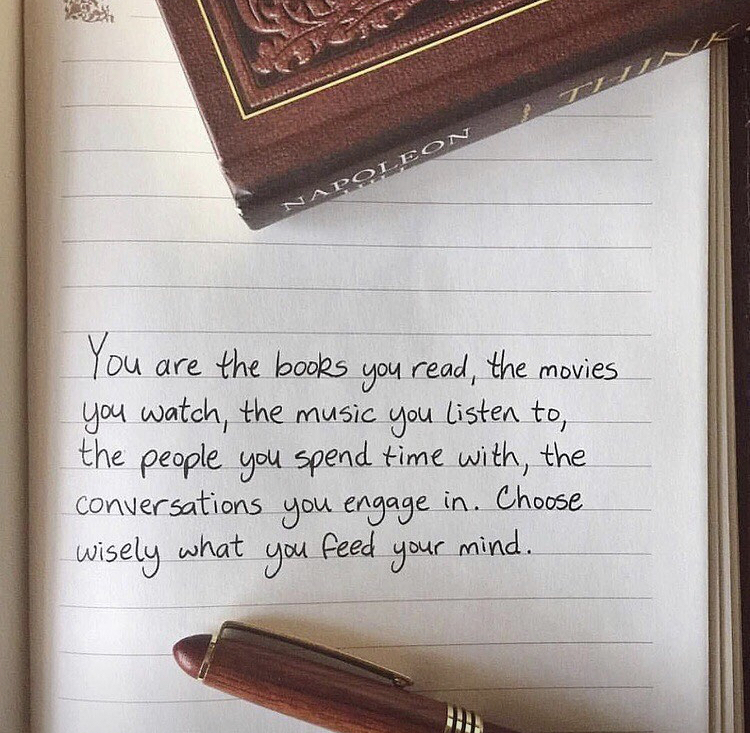 THINK
NAPOLEON
HILL
You are the books you read, the movies
you watch, the music you listen to,
the people you spend time with, the
conversations you engage in. Choose
wisely what you feed your mind.